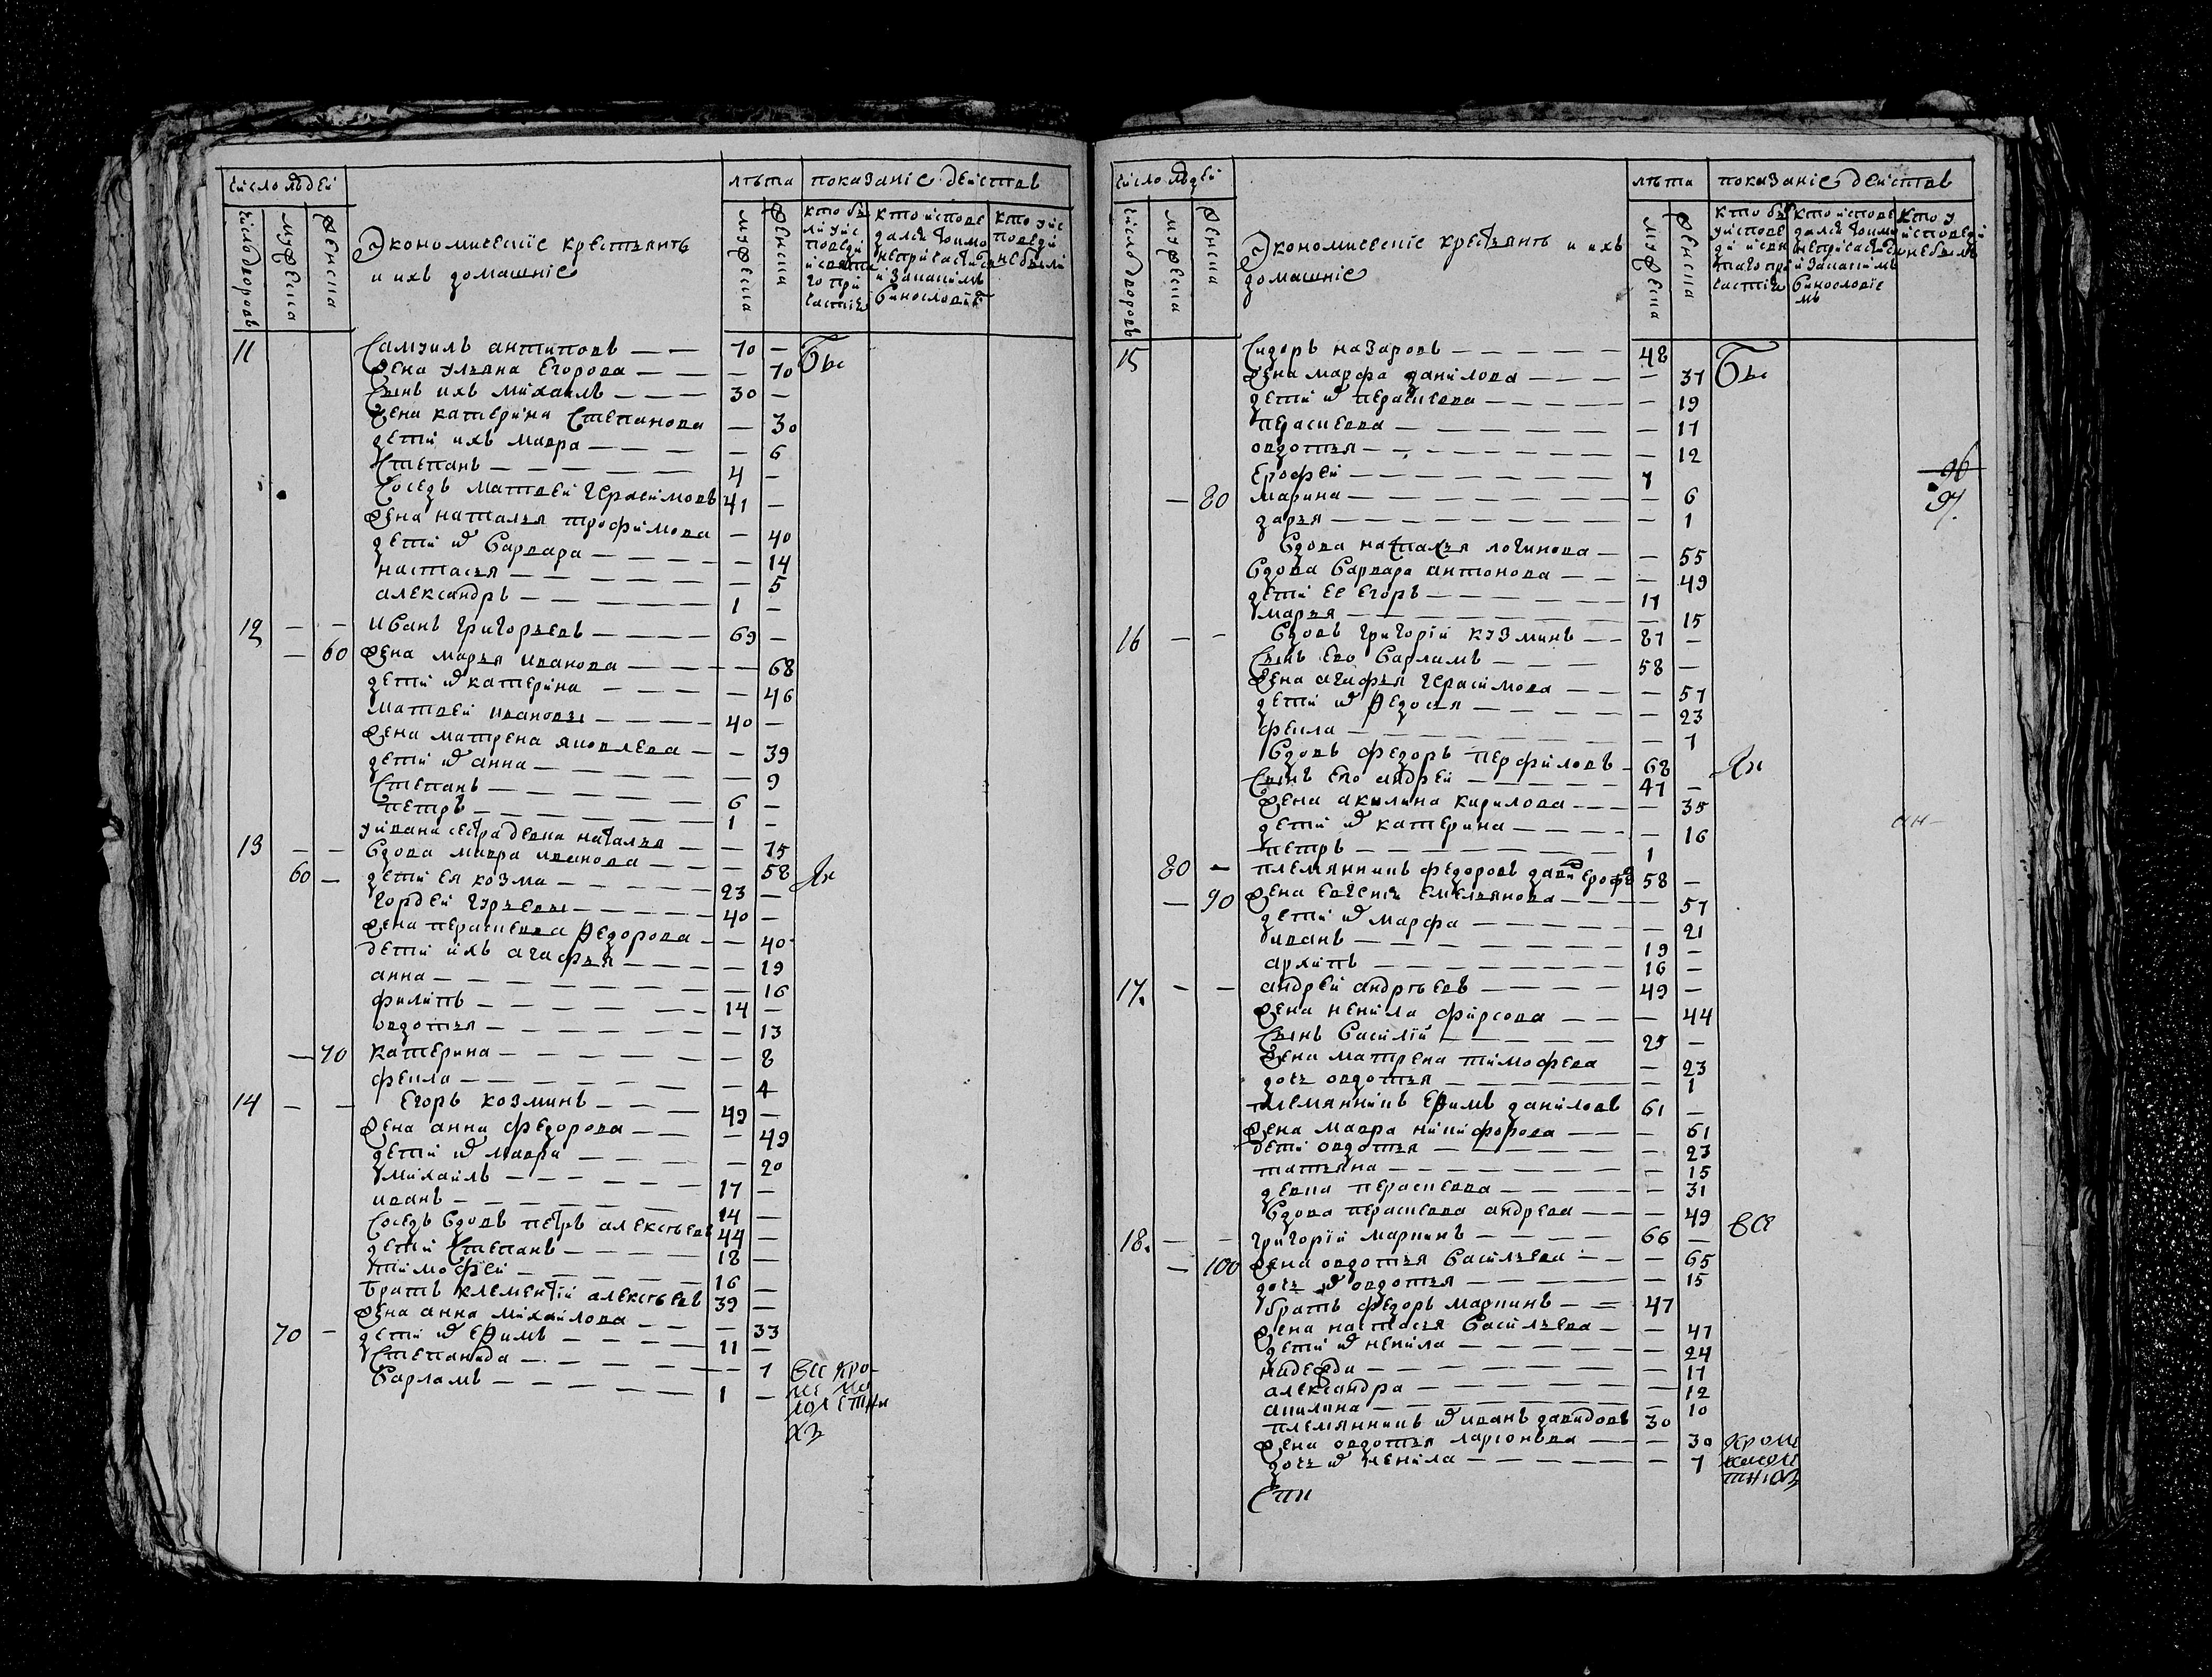 число людей
лѣта
показанiе действъ
число дворовъ
мужеска
женска
Экономическiе крестьянъ
и ихъ домашнiе
мужеска
женска
кто бы
ли у ис
поведи
и свята
го при
частiя
кто испове
дался токмо
не причастился
и за каким
винословiем
кто у ис
поведи
не были
11 Самуилъ антиповъ — 70 —
жена ульяна Егорова — 70
сынъ ихъ михаилъ — 30 —
жена катерина Степанова — 30
дети ихъ мавра — 6
Степанъ — 4 —
Соседъ матвей герасимовъ 41 —
жена наталья трофимова — 40
дети их варвара — 14
настасья — 5
александръ — 1 —
12 — — иванъ григорьевъ — 69 —
— 60 жена марья иванова — 68
дети их катерина — 46
матвей ивановъ — 40 —
жена матрена яковлева — 39
дети их анна — 9
Степанъ — 6 —
петръ — 1 —
у ивана сестра девка наталья — 75
13 — — вдова мавра иванова — 58
60 — дети ея козма — 23 —
гордей гурьевъ — 40 —
жена пераскева федорова — 40
дети ихъ агафья — 19
анна — 16
филипъ — 14 —
овдотья — 13
— 70 катерина — 8
фекла — 4
14 — — Егоръ козминъ — 49 —
жена анна федорова — 49
дети их мавра — 20
михайлъ — 17 —
иванъ — 14 —
Соседъ вдовъ петръ алексѣевъ 44 —
дети Степанъ — 18 —
тимофей — 16 —
братъ клементiй алексѣевъ 39 —
жена анна михайлова — 33
70 — дети их Ефимъ — 11 —
Степанида — 7
варламъ — 1 —
все кро
ме ма
лолетни
хъ
число людей
лѣта
показанiе действъ
число дворовъ
мужеска
женска
Экономическiе крестьянъ и ихъ
домашнiе
мужеска
женска
кто бы
у испове
ди и свя
таго при
частiя
кто испове
дался токмо
не причастился
и за каким
винословiе
мъ
кто у
исповеди
не былъ
15 Сидоръ назаровъ — 48
жена марфа данилова — 37
дети их пераскева — 19
пераскева — 17
овдотья — 12
Ерофей — 7
96
— 80 марина — 6
97
дарья — 1
вдова наталья логинова — 55
вдова варвара антонова — 49
дети ее Егоръ — 17
марья — 15
16 — — вдовъ григорiй кузминъ — 87 —
Сынъ Ево варламъ — 58 —
жена агафья герасимова — 57
дети их федосья — 23
фекла — 7
вдовъ федоръ перфиловъ — 68
Сынъ Его андрей — 47 —
жена акилина кирилова — 35
дети их катерина — 16
петръ — 1
80 — племянникъ федоровъ 58 —
— 90 жена Евгенiя Емельянова — 57
дети их марфа — 21
иванъ — 19 —
архипъ — 16 —
17. — — андрей андрѣевъ — 49 —
жена ненила фирсова — 44
Сынъ василiй — 25 —
жена матрена тимофева — 23
дочь овдотья — 1
племянникъ Ефимъ даниловъ 61 —
жена мавра никифорова — 61
дети овдотья — 23
татьяна — 15
девка пераскева — 31
вдова пераскева андрева — 49
18. — — григорiй маркинъ — 66 —
все
— 100 жена овдотья васильева — 65
дочь их овдотья — 15
братъ федоръ маркинъ — 47
жена настасья васильева — 47
дети их ненила — 24
надежда — 17
александра — 12
акилина — 10
племянникъ их иванъ давидовъ 30
жена овдотья ларiонова — 30
дочь их ненила — 7
кроме
малоле
тнихъ